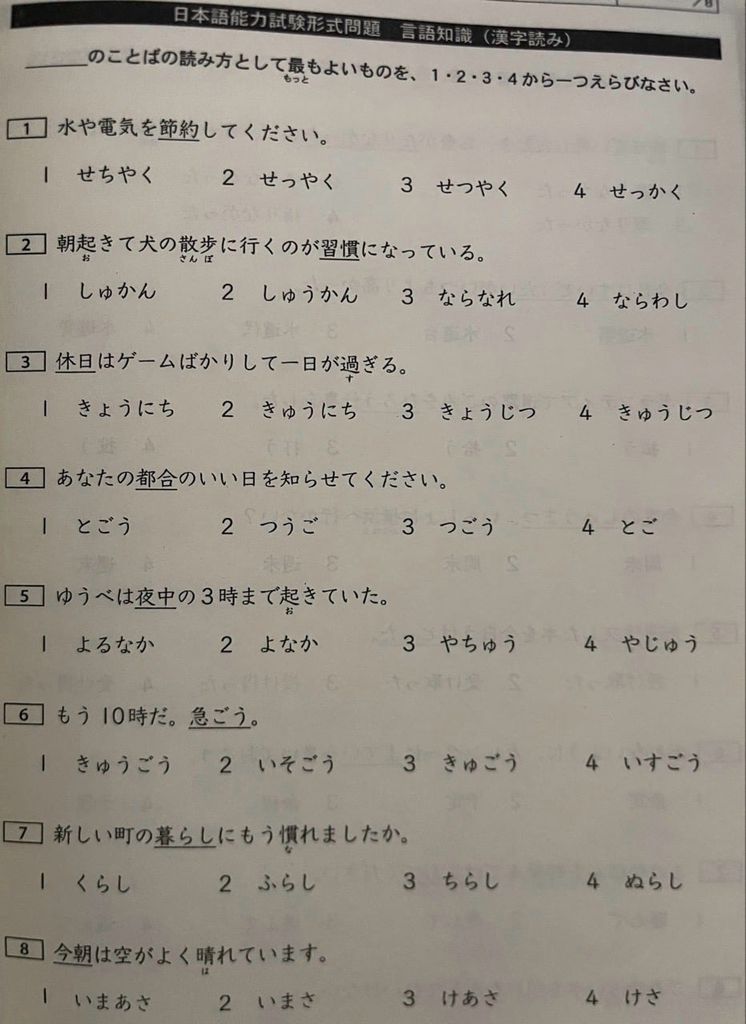 /8
日本語能力試験形式問題　言語知識（漢字読み）
______のことばの読み方として最もよいものを、1・2・3・4から一つえらびなさい。
もっと
1 水や電気を節約してください。
1 せちやく 2 せっやく 3 せつやく 4 せっかく
2 朝起きて犬の散歩に行くのが習慣になっている。
お さんぽ
1 しゅかん 2 しゅうかん 3 ならなれ 4 ならわし
3 休日はゲームばかりして一日が過ぎる。
す
1 きょうにち 2 きゅうにち 3 きょうじつ 4 きゅうじつ
4 あなたの都合のいい日を知らせてください。
1 とごう 2 つうご 3 つごう 4 とご
5 ゆうべは夜中の3時まで起きていた。
お
1 よるなか 2 よなか 3 やちゅう 4 やじゅう
6 もう10時だ。急ごう。
1 きゅうごう 2 いそごう 3 きゅごう 4 いすごう
7 新しい町の暮らしにもう慣れましたか。
な
1 くらし 2 ふらし 3 ちらし 4 ぬらし
8 今朝は空がよく晴れています。
は
1 いまあさ 2 いまさ 3 けあさ 4 けさ